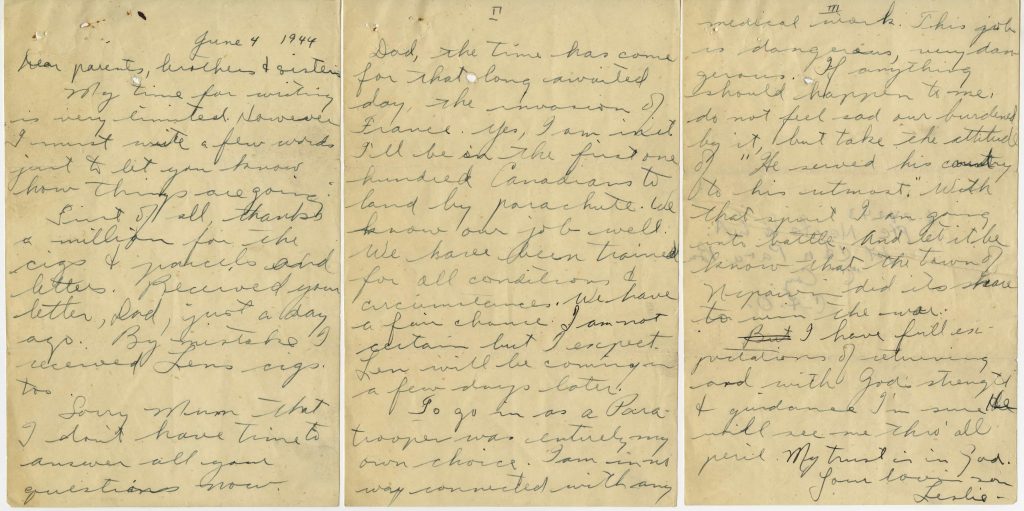 June 4 1944
Dear parents, brothers & sisters
My time for writing
is very limited. However
I must write a few words
just to let you know
how things are going.
First of all, thanks
a million for the
cigs & parcels and
letters. Received your
letter, Dad, just a day
ago. By mistake I
received Lens cigs.
too.
Sorry Mum that
I don't have time to
answer all your
questions now.
II
Dad, the time has come
for that long awaited
day, the invasion of
France. Yes, I am in it.
I'll be in the first one
hundred Canadians to
land by parachute. We
know our job well.
We have been trained
for all conditions &
circumstances. We have
a fair chance. I am not
certain but I expect
Len will be coming in
a few days later.
To go in as a Para-
trooper was entirely my
own choice. I am in no
way connected with any
III
medical work. This job
is dangerous, very dan
gerous. If anything
should happen to me,
do not feel sad our burdened
by it, but take the attitude
of "He served his country
to his utmost." With
that spirit I am going
into battle. And let it be
known that the town of
Nipawin did its share
to win the war.
But I have full ex-
pectations of returning
and with God's strength
& guidance I'm sure He
will see me thro' all
peril. My trust is in God.
Your loving son
Leslie -